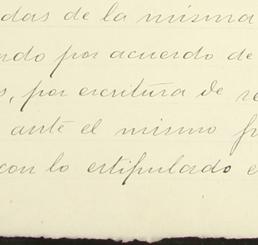 das de la misma
ndo por acuerdo de
s, por escritura de re
ante el mismo
con lo estipulado e